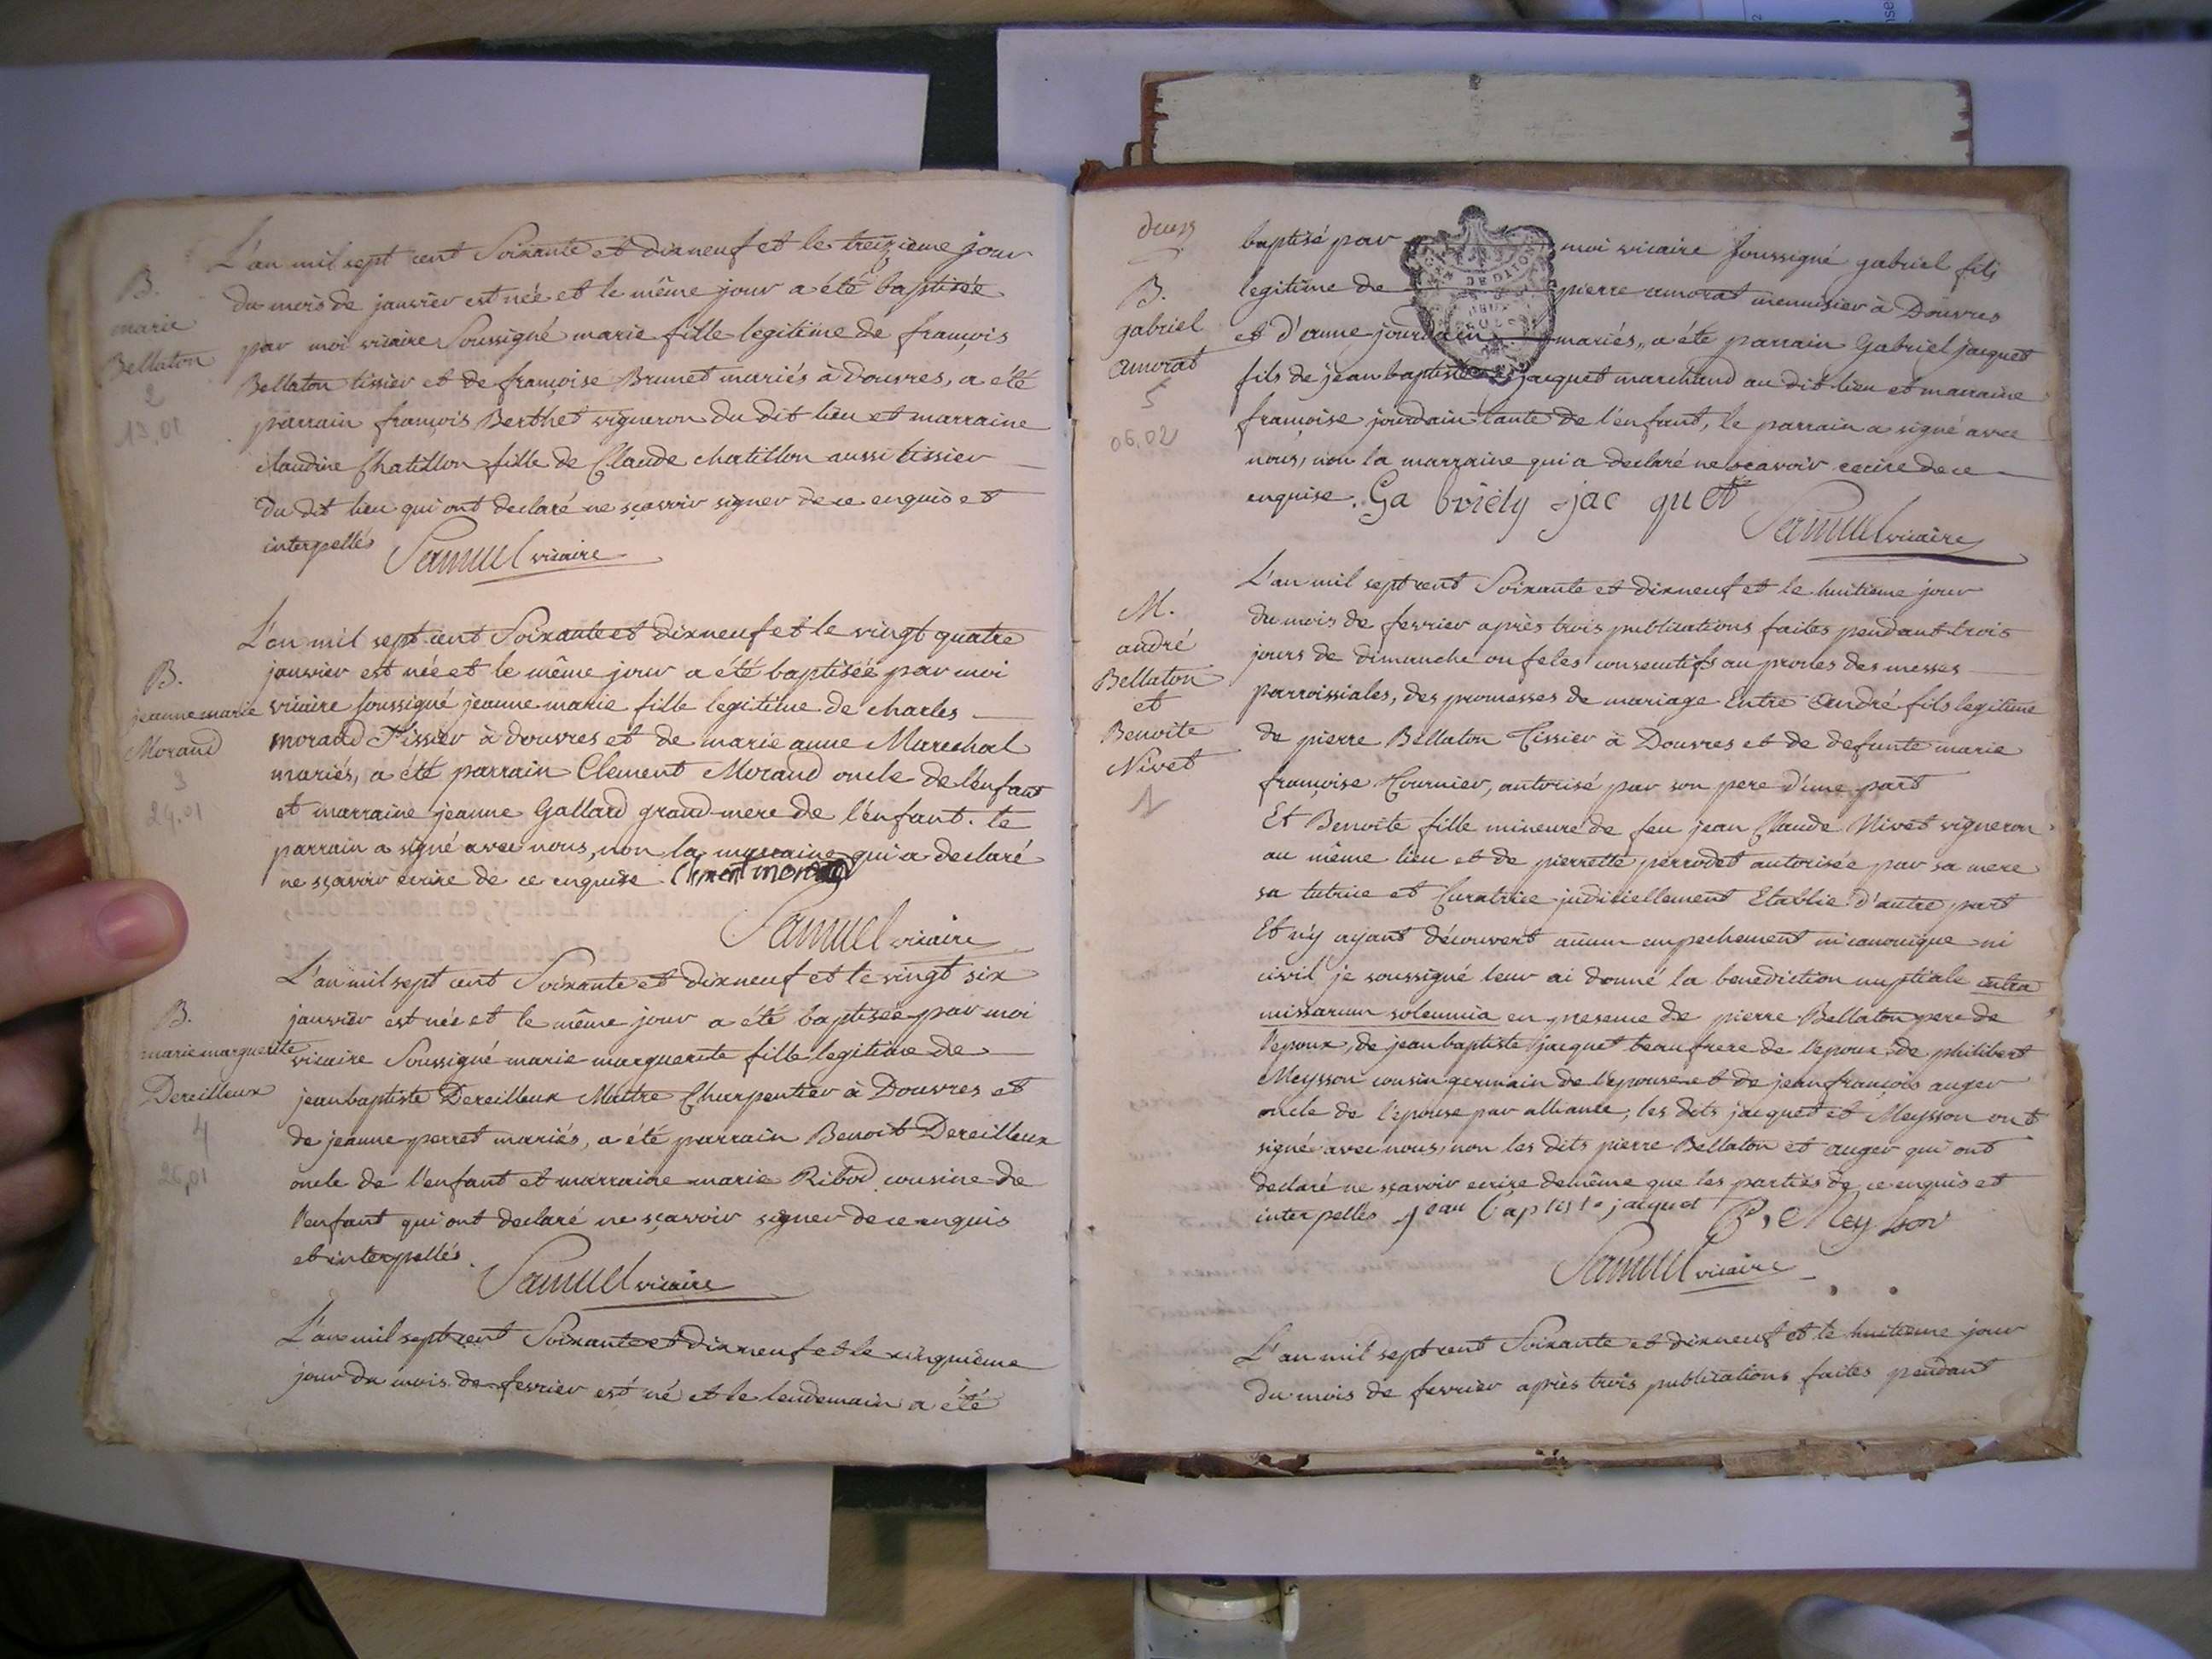 B.
marie
Bellaton
2
13,01
L'an mil sept cent Soixante et dixneuf et le treizieme jour
du mois de janvier est née et le même jour a été baptisée
par moi vicaire Soussigné marie fille legitime de françois
Bellaton tissier et de françoise Brunet mariés à Douvres, a été
parrain françois Berthet vigneron du dit lieu et marraine
claudine Chatillon fille de Claude chatillon aussi tissier
du dit lieu qui ont declaré ne sçavoir signer de ce enquis et
interpellés Samuel vicaire
B.
jeanne marie
Morand
3
24,01
L'an mil sept cent Soixante et dixneuf et le vingt quatre
janvier est née et le même jour a été baptisée par moi
vicaire soussigné jeanne marie fille legitime de charles
morand Tissier à douvres et de marie anne Marechal
mariés, a été parrain Clement Morand oncle de l'enfant
et marraine jeanne Gallard grand-mere de l'enfant. le
parrain a signé avec nous, non la marraine qui a declaré
ne sçavoir ecrire de ce enquise
Samuel vicaire
B.
marie marguerite
Dereilleux
4
26,01
L'an mil sept cent Soixante et dixneuf et le vingt six
janvier est née et le même jour a été baptisée par moi
vicaire Soussigné marie marguerite fille legitime de
jean baptiste Dereilleux Maitre Charpentier à Douvres et
de jeanne perret mariés, a été parrain Benoit Dereilleux
oncle de l'enfant et marraine marie Ribod cousine de
l'enfant qui ont declaré ne sçavoir signer de ce enquis
et interpellés. Samuel vicaire
L'an mil sept cent Soixante et dixneuf et le cinquieme
jour du mois de fevrier est né et le lendemain a été
deux
B.
gabriel
amorat
5
06,02
baptisé par moi vicaire soussigné gabriel fils
legitime de pierre amorat menuisier à Douvres
et d'anne jourdain mariés, a été parrain Gabriel jacquet
fils de jean baptiste jacquet marchand au dit lieu et marraine
françoise jourdain tante de l'enfant, le parrain a signé avec
nous, non la marraine qui a declaré ne sçavoir ecrire de ce
enquise. Ga briely jac quet
Samuel vicaire
M.
andré
Bellaton
et
Benoite
Nivet
1
L'an mil sept cent Soixante et dixneuf et le huitieme jour
du mois de fevrier après trois publications faites pendant trois
jours de dimanche ou fetes consecutifs au prones des messes
parroissiales, des promesses de mariage Entre andré fils legitime
de pierre Bellaton Tissier à Douvres et de defunte marie
françoise Tournier, autorisé par son pere d'une part
Et Benoite fille mineure de feu jean Claude Nivet vigneron
au même lieu et de pierrette perrodet autorisée par sa mere
sa tutrice et Curatrice judiciellement Etablie d'autre part
Et n'y ayant découvert aucun empechement ni canonique ni
civil je soussigné leur ai donné la benediction nuptiale intra
missarum solemnia en presence de pierre Bellaton pere de
l'epoux, de jean baptiste jacquet beaufrere de l'epoux, de philibert
Meysson cousin germain de l'epouse et de jean françois auger
oncle de l'epouse par alliance, les dits jacquet et Meysson ont
signé avec nous, non les dits pierre Bellaton et auger qui ont
declaré ne sçavoir ecrire de même que les parties de ce enquis et
interpellés jean baptiste jacquet P. Meysson
Samuel vicaire
L'an mil sept cent Soixante et dixneuf et le huitieme jour
du mois de fevrier après trois publications faites pendant